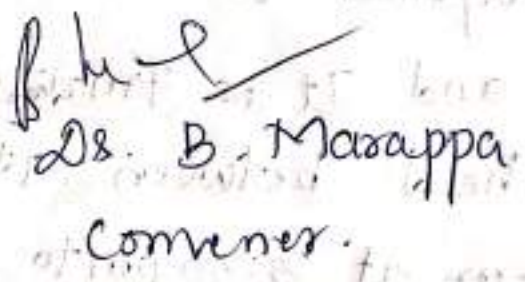 Dr. B. Marappa.
Convener.